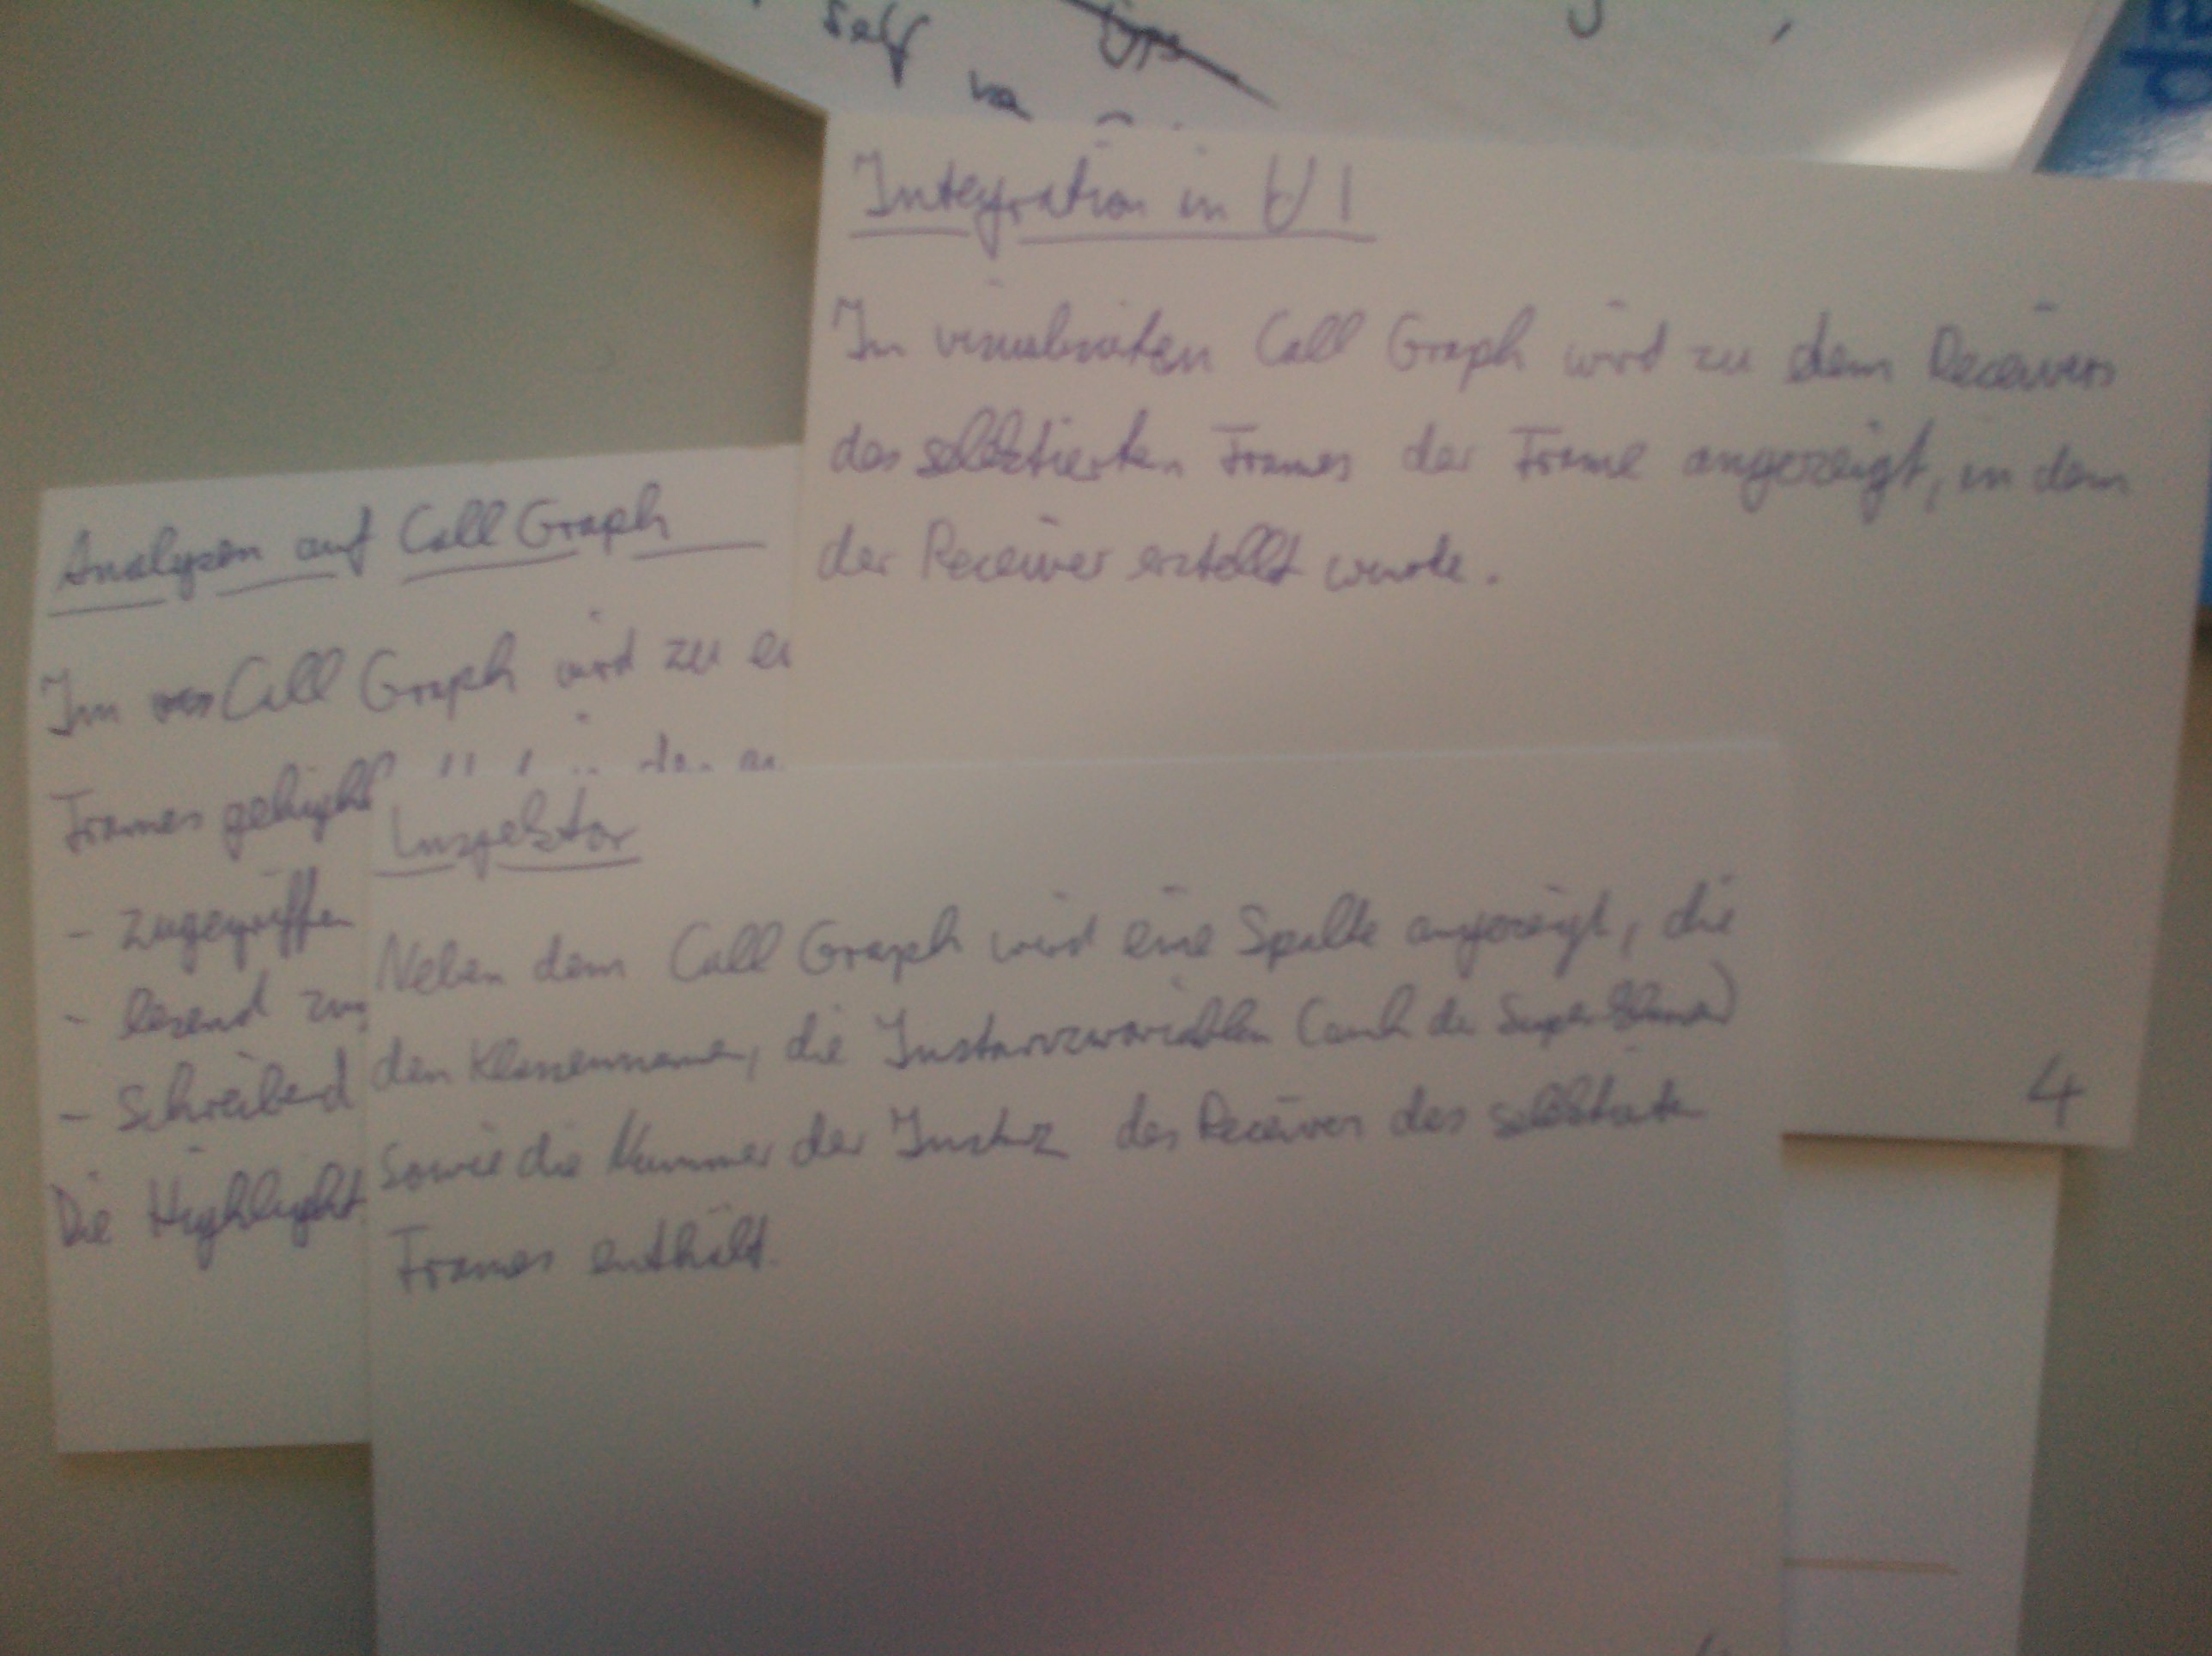 self
Integration in UI
Im visualisierten Call Graph wird zu dem Receivers
des selektierten Frames der Frame angezeigt, in dem
der Receiver erstellt wurde.
4
Analysen auf Call Graph
Im Call Graph wird zu
Frames gehighl
- zugegriffen
- lesend zug
- Schreibend
Die Highlight
Inspektor
Neben dem Call Graph wird eine Spalte angezeigt, die
den Klassenname, die Instanzvariablen (auch der Superklasse)
Sowie die Nummer der Instanz des Receiver des selektierten
Frames enthält.